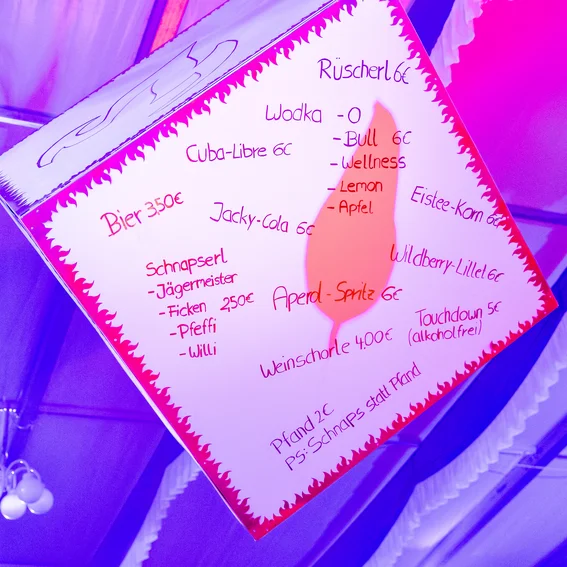 Rüscherl 6€
Wodka - O
- Bull 6€
- Wellness
- Lemon
- Apfel
Cuba-Libre 6€
Eistee-Korn 6€
Bier 3,50€
Jacky-Cola 6€
Wildberry-Lillet 6€
Schnapserl
- Jägermeister
- Ficken 2,50€
- Pfeffi
- Willi
Aperol-Spritz 6€
Touchdown 5€
(alkoholfrei)
Weinschorle 4,00€
Pfand 2€
PS: Schnaps statt Pfand